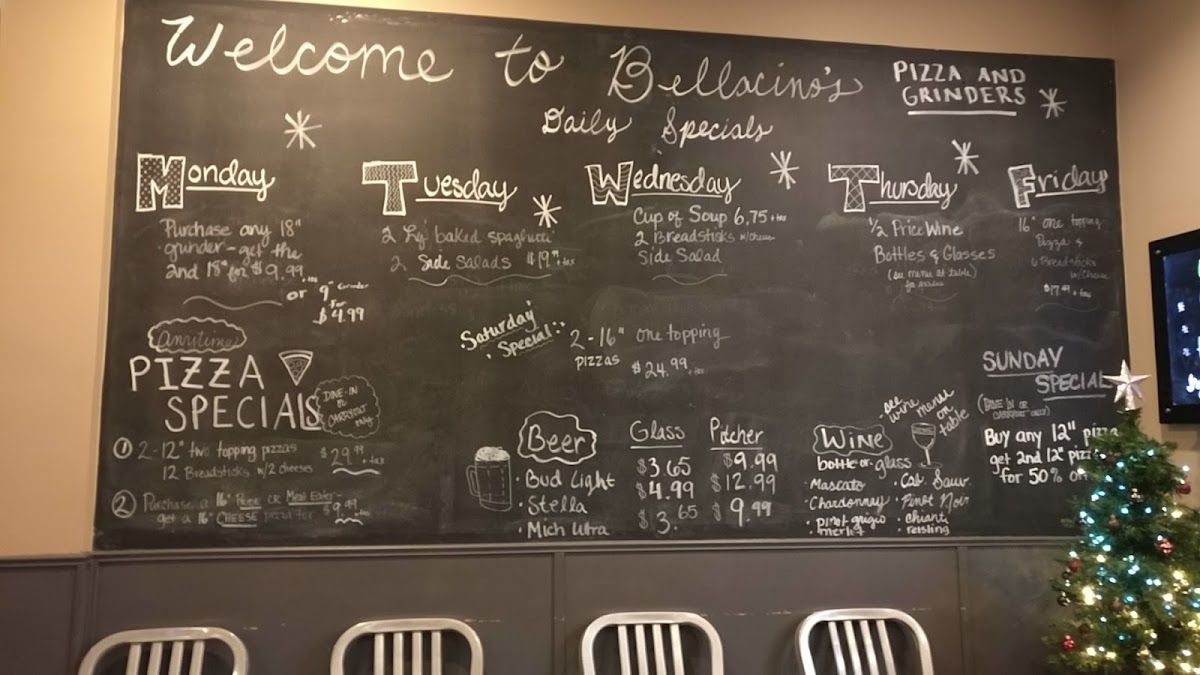 Welcome to Bellacino's
PIZZA AND
GRINDERS
Daily Specials
Monday
Purchase any 18"
grinder - get the
2nd 18" for $9.99 + tax
or 9" Grinder
for
$4.99
Tuesday
2 Lg baked spaghetti
2 Side Salads $19.99 + tax
Wednesday
Cup of Soup 6.75 + tax
2 Breadsticks w/cheese
Side Salad
Thursday
1/2 Price Wine
Bottles & Glasses
(see menu at table)
Friday
16" one topping
Pizza &
6 Breadsticks
w/Cheese
$17.99 + tax
Saturday
Special:
2 - 16" one topping
pizzas $24.99 + tax
Anytime
PIZZA
SPECIALS
DINE-IN
or
CARRYOUT
only
① 2 - 12" two topping pizzas $29.99 + tax
12 Breadsticks w/2 cheeses
② Purchase a 16" or Meat Eater -
get a 16" CHEESE pizza for $9.99 + tax
Beer Glass Pitcher
• Bud Light $3.65 $9.99
• Stella $4.99 $12.99
• Mich Ultra $3.65 $9.99
- see
wine menu
on
table
Wine
bottle or glass
• Moscato • Cab. Sauv.
• Chardonnay • Pinot Noir
• pinot grigio • chianti
• merlot • reisling
SUNDAY
SPECIAL
(DINE IN or
CARRYOUT ONLY)
Buy any 12" pizza
get 2nd 12" pizz
for 50% off